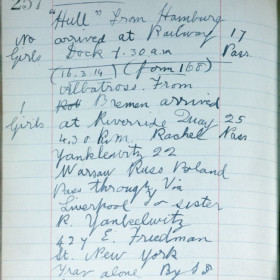 257
"Hull" from Hamburg
No arrived at Railway 17
Girls Dock 7.30 a.m Pass.
(16.3.14) (form 168)
Albatross. From
1 Bremen arrived
Girls at Riverside Quay 25
4.30 P.m. Rachel Pass.
Yanklevitz 22
Warsaw Russ Poland
Pass through Via
Liverpool to sister
R. Yankelwitz
427 E. Friedman
St. New York
Trav alone By